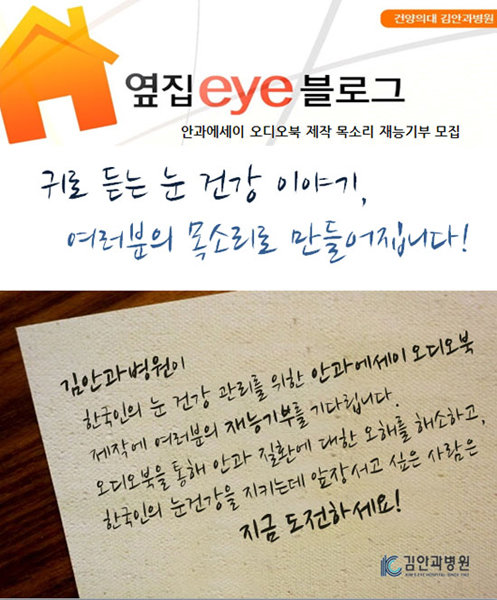 건양의대 김안과병원
옆집eye블로그
안과에세이 오디오북 제작 목소리 재능기부 모집
귀로 듣는 눈 건강 이야기,
여러분의 목소리로 만들어집니다!
김안과병원이
한국인의 눈 건강 관리를 위한 안과에세이 오디오북
제작에 여러분의 재능기부를 기다립니다.
오디오북을 통해 안과 질환에 대한 오해를 해소하고,
한국인의 눈건강을 지키는데 앞장서고 싶은 사람은
지금 도전하세요!
김안과병원
KIM'S EYE HOSPITAL SINCE 1962